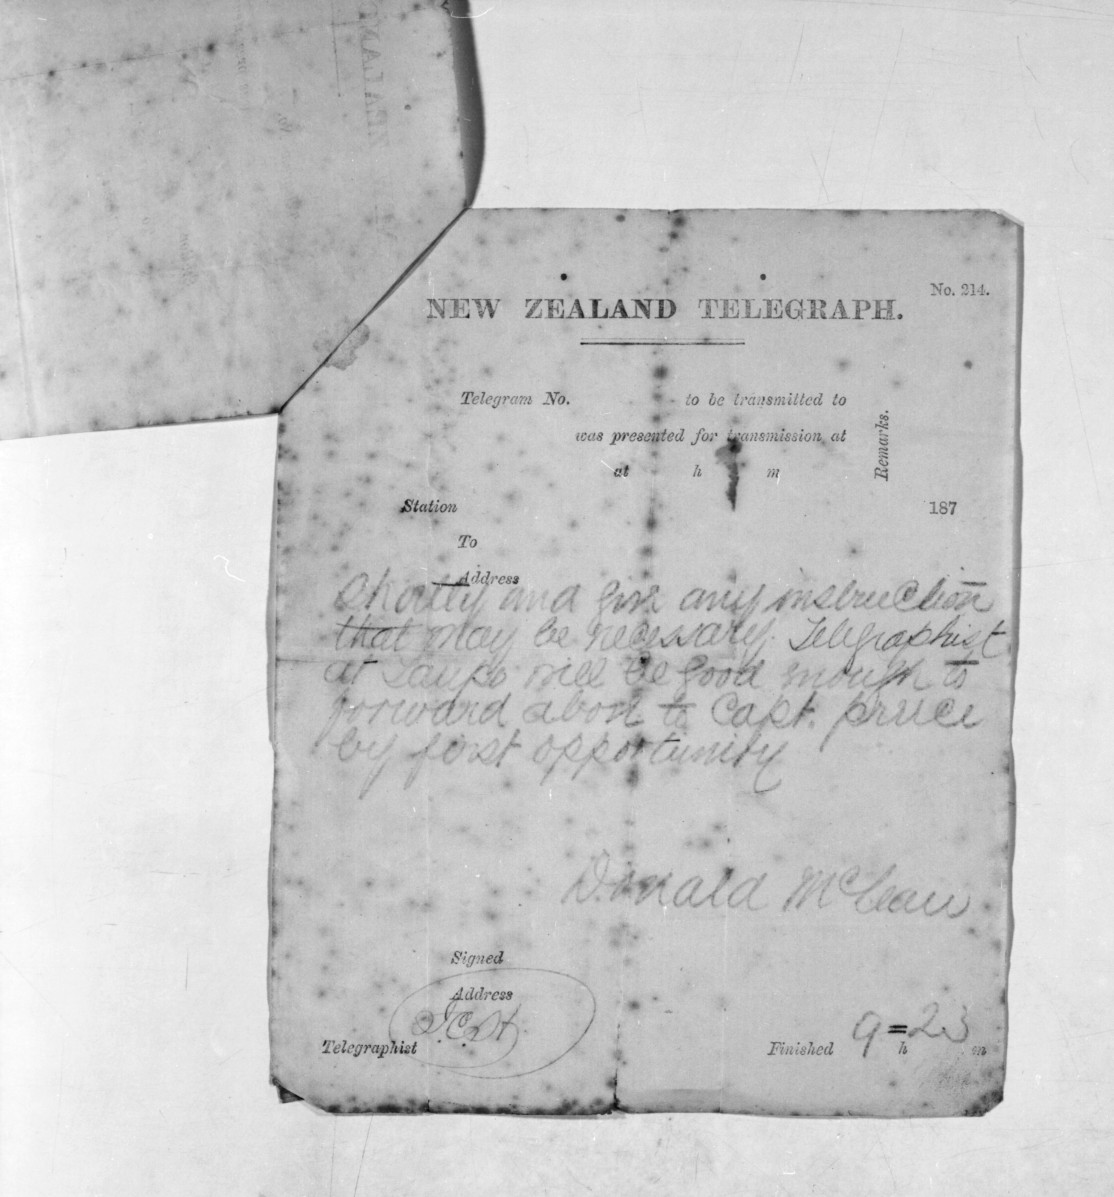 No. 214.
NEW ZEALAND TELEGRAPH.
Telegram No. to be transmitted to
was presented for transmission at
at h m
Remarks.
Station 187
To
Address
Shortly and give any instruction
that may be necessary. Telegraphist
at Taupo will be good enough to
forward above to Capt. Preece
by first opportunity
Donald McLean
Signed
Address
Telegraphist
Finished 9 = 23
h m